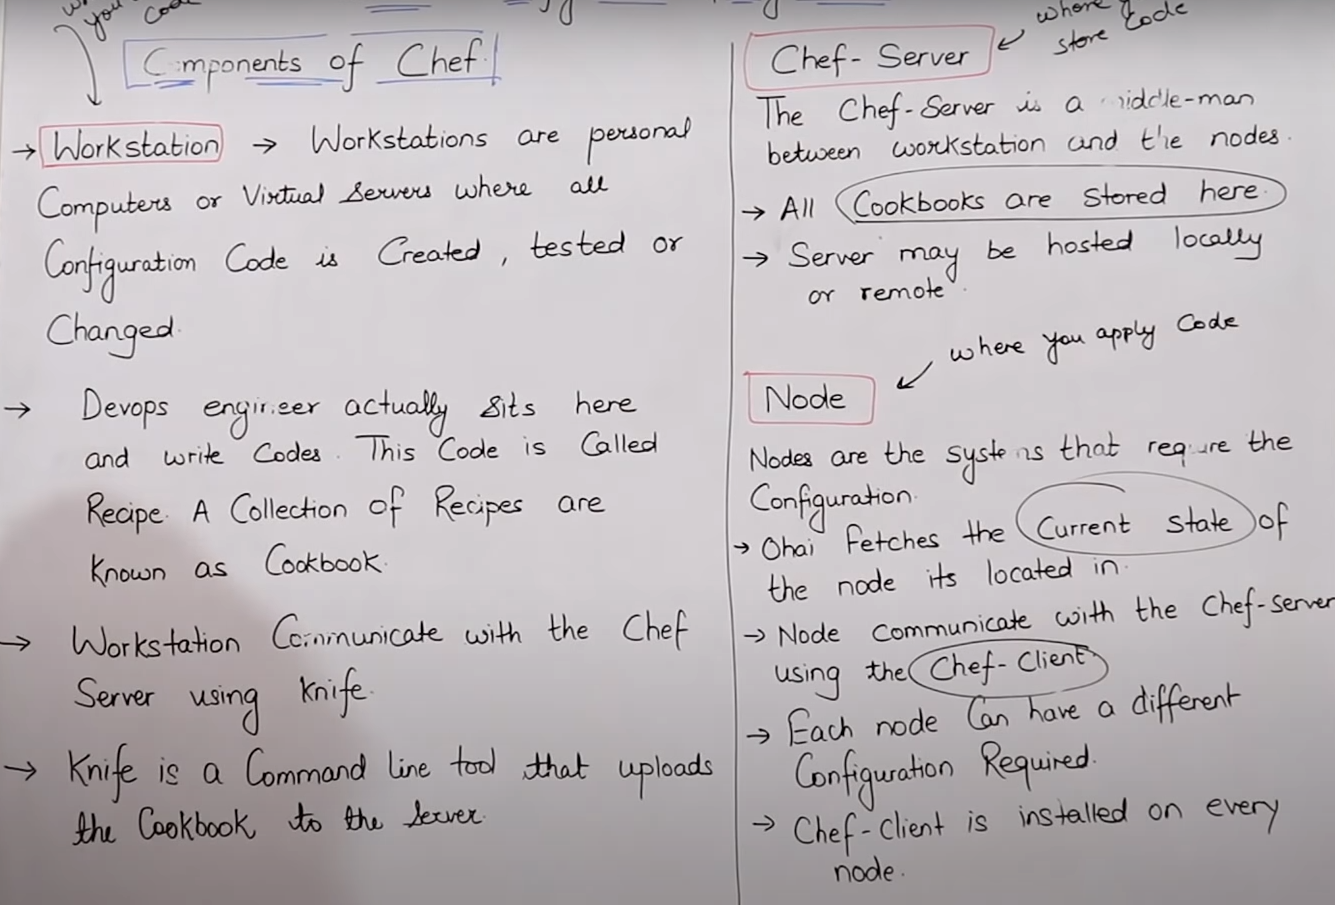 you
code
Components of Chef
→ Workstation → Workstations are personal
Computers or Virtual Servers where all
Configuration Code is Created, tested or
Changed.
→ Devops engineer actually sits here
and write Codes. This Code is Called
Recipe. A Collection of Recipes are
Known as Cookbook.
→ Workstation Communicate with the Chef
Server using Knife.
→ Knife is a Command line tool that uploads
the Cookbook to the Server.
where
store Code
Chef-Server
The Chef-Server is a middle-man
between workstation and the nodes.
→ All Cookbooks are Stored here.
→ Server may be hosted locally
or remote.
where you apply Code
Node
Nodes are the systems that require the
Configuration.
→ Ohai Fetches the Current State of
the node its located in.
→ Node communicate with the Chef-Server
using the Chef-Client.
→ Each node Can have a different
Configuration Required.
→ Chef-Client is installed on every
node.